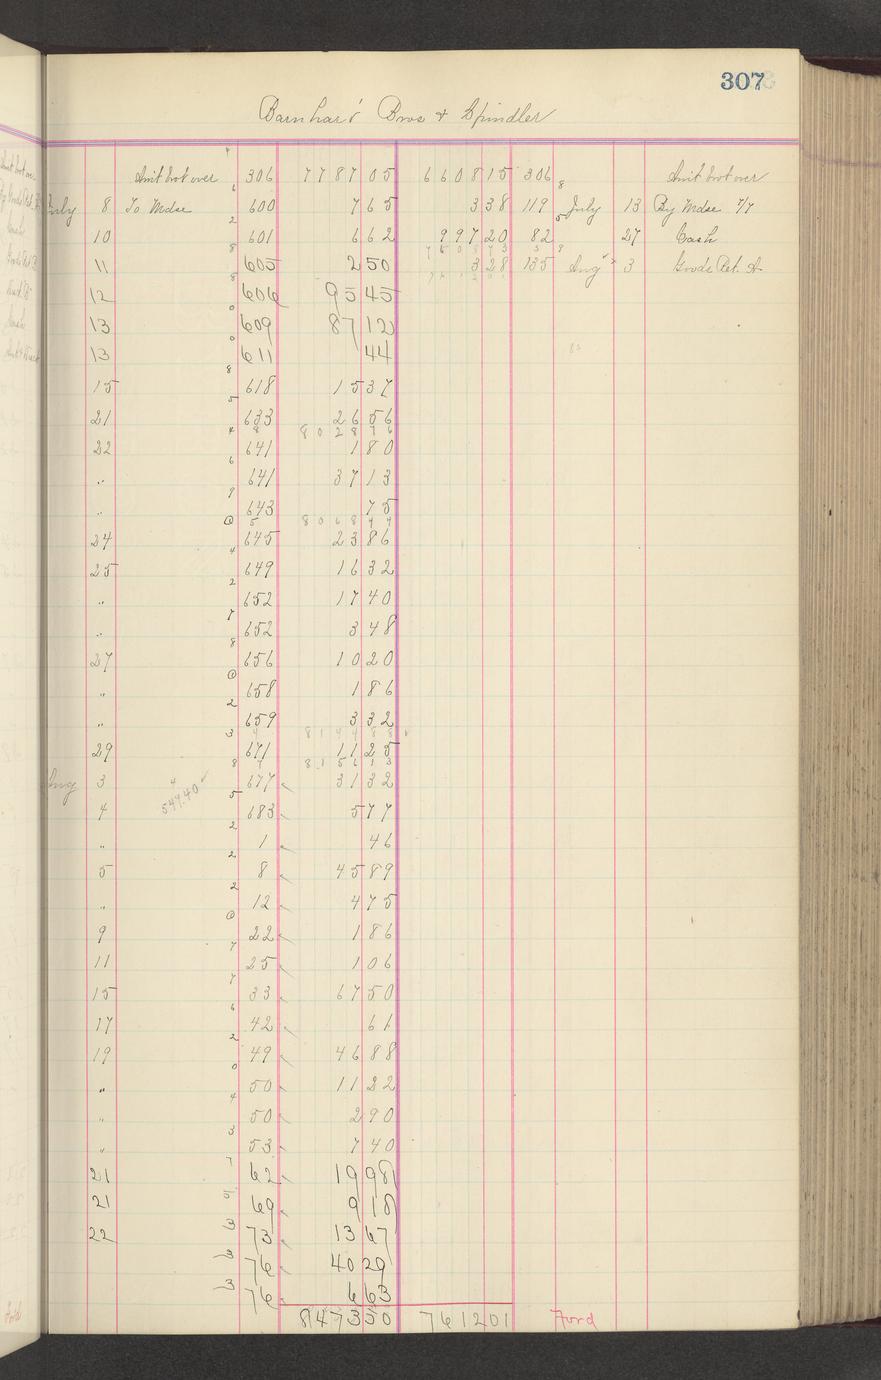 307
Barnhart Bros & Spindler
Am't brot over 306 7787 05 6608 15 306 Am't brot over
July 8 To Mdse 600 7 65 3 38 119 July 13 By Mdse 7/7
10 601 6 62 997 20 82 27 Cash
11 605 2 50 3 28 135 Aug 3 Goods Ret.
12 606 95 45
13 609 87 12
13 611 44
15 618 15 37
21 633 26 56
8028 76
22 641 1 80
" 641 37 13
" 643 75
8068 44
24 645 23 86
25 649 16 32
" 652 17 40
" 652 3 48
27 656 10 20
" 658 1 86
" 659 3 32
8144 88
29 671 11 25
8156 13
Aug 3 547.40 677 31 32
4 683 5 77
" 1 46
5 8 45 89
" 12 4 75
9 22 1 86
11 25 1 06
15 33 67 50
17 42 61
19 49 46 88
" 50 11 22
" 50 2 90
" 53 7 40
21 62 19 98
21 69 9 18
22 73 13 67
76 40 29
76 6 63
8473 50 7612 01 Ford